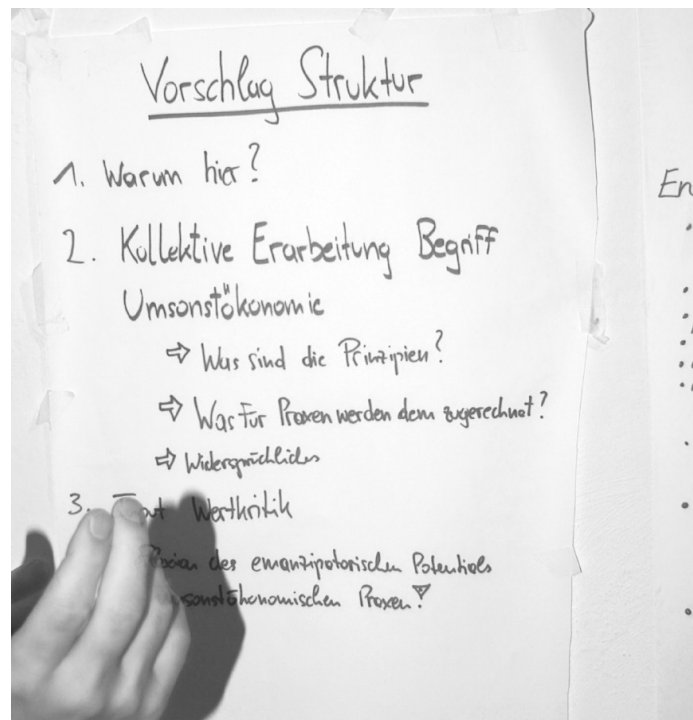 Vorschlag Struktur
1. Warum hier?
2. Kollektive Erarbeitung Begriff
Umsonstökonomie
⇨ Was sind die Prinzipien?
⇨ Was für Praxen werden dem zugerechnet?
⇨ Widersprüchliches
3. Wertkritik
des emanzipatorischen Potentials
sonstökonomischen Praxen?
En